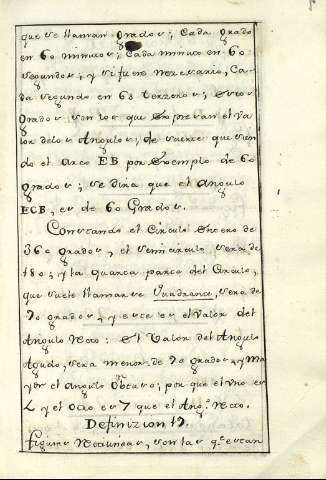 que se llaman grados; cada grado
en 60 minutos; cada minuto en 60
segundos; y si fuere nezesario, Ca-
da segundo en 60 terzeros; Estos
grados son los que Expresan el va
lor delos Angulos; de suerte que sien
do el Arco EB por Exemplo de 60
grados; se dira que el Angulo
ECB, es de 60 Grados.
Constando el Circulo Entero de
360 grados, el semicirculo sera de
180; y la quarta parte del Circulo,
que suele llamarse Quadrante, sera de
90 grados, y este es el Valor del
Angulo Recto: El Valor del Angulo
Agudo, sera menor de 90 grados, y Ma
yor el Angulo Obtuso; por que el Uno es
L y el Otro es 7 que el Ang.º Recto.
Definizion 12.
figuras Rectilineas, son las q.e estan